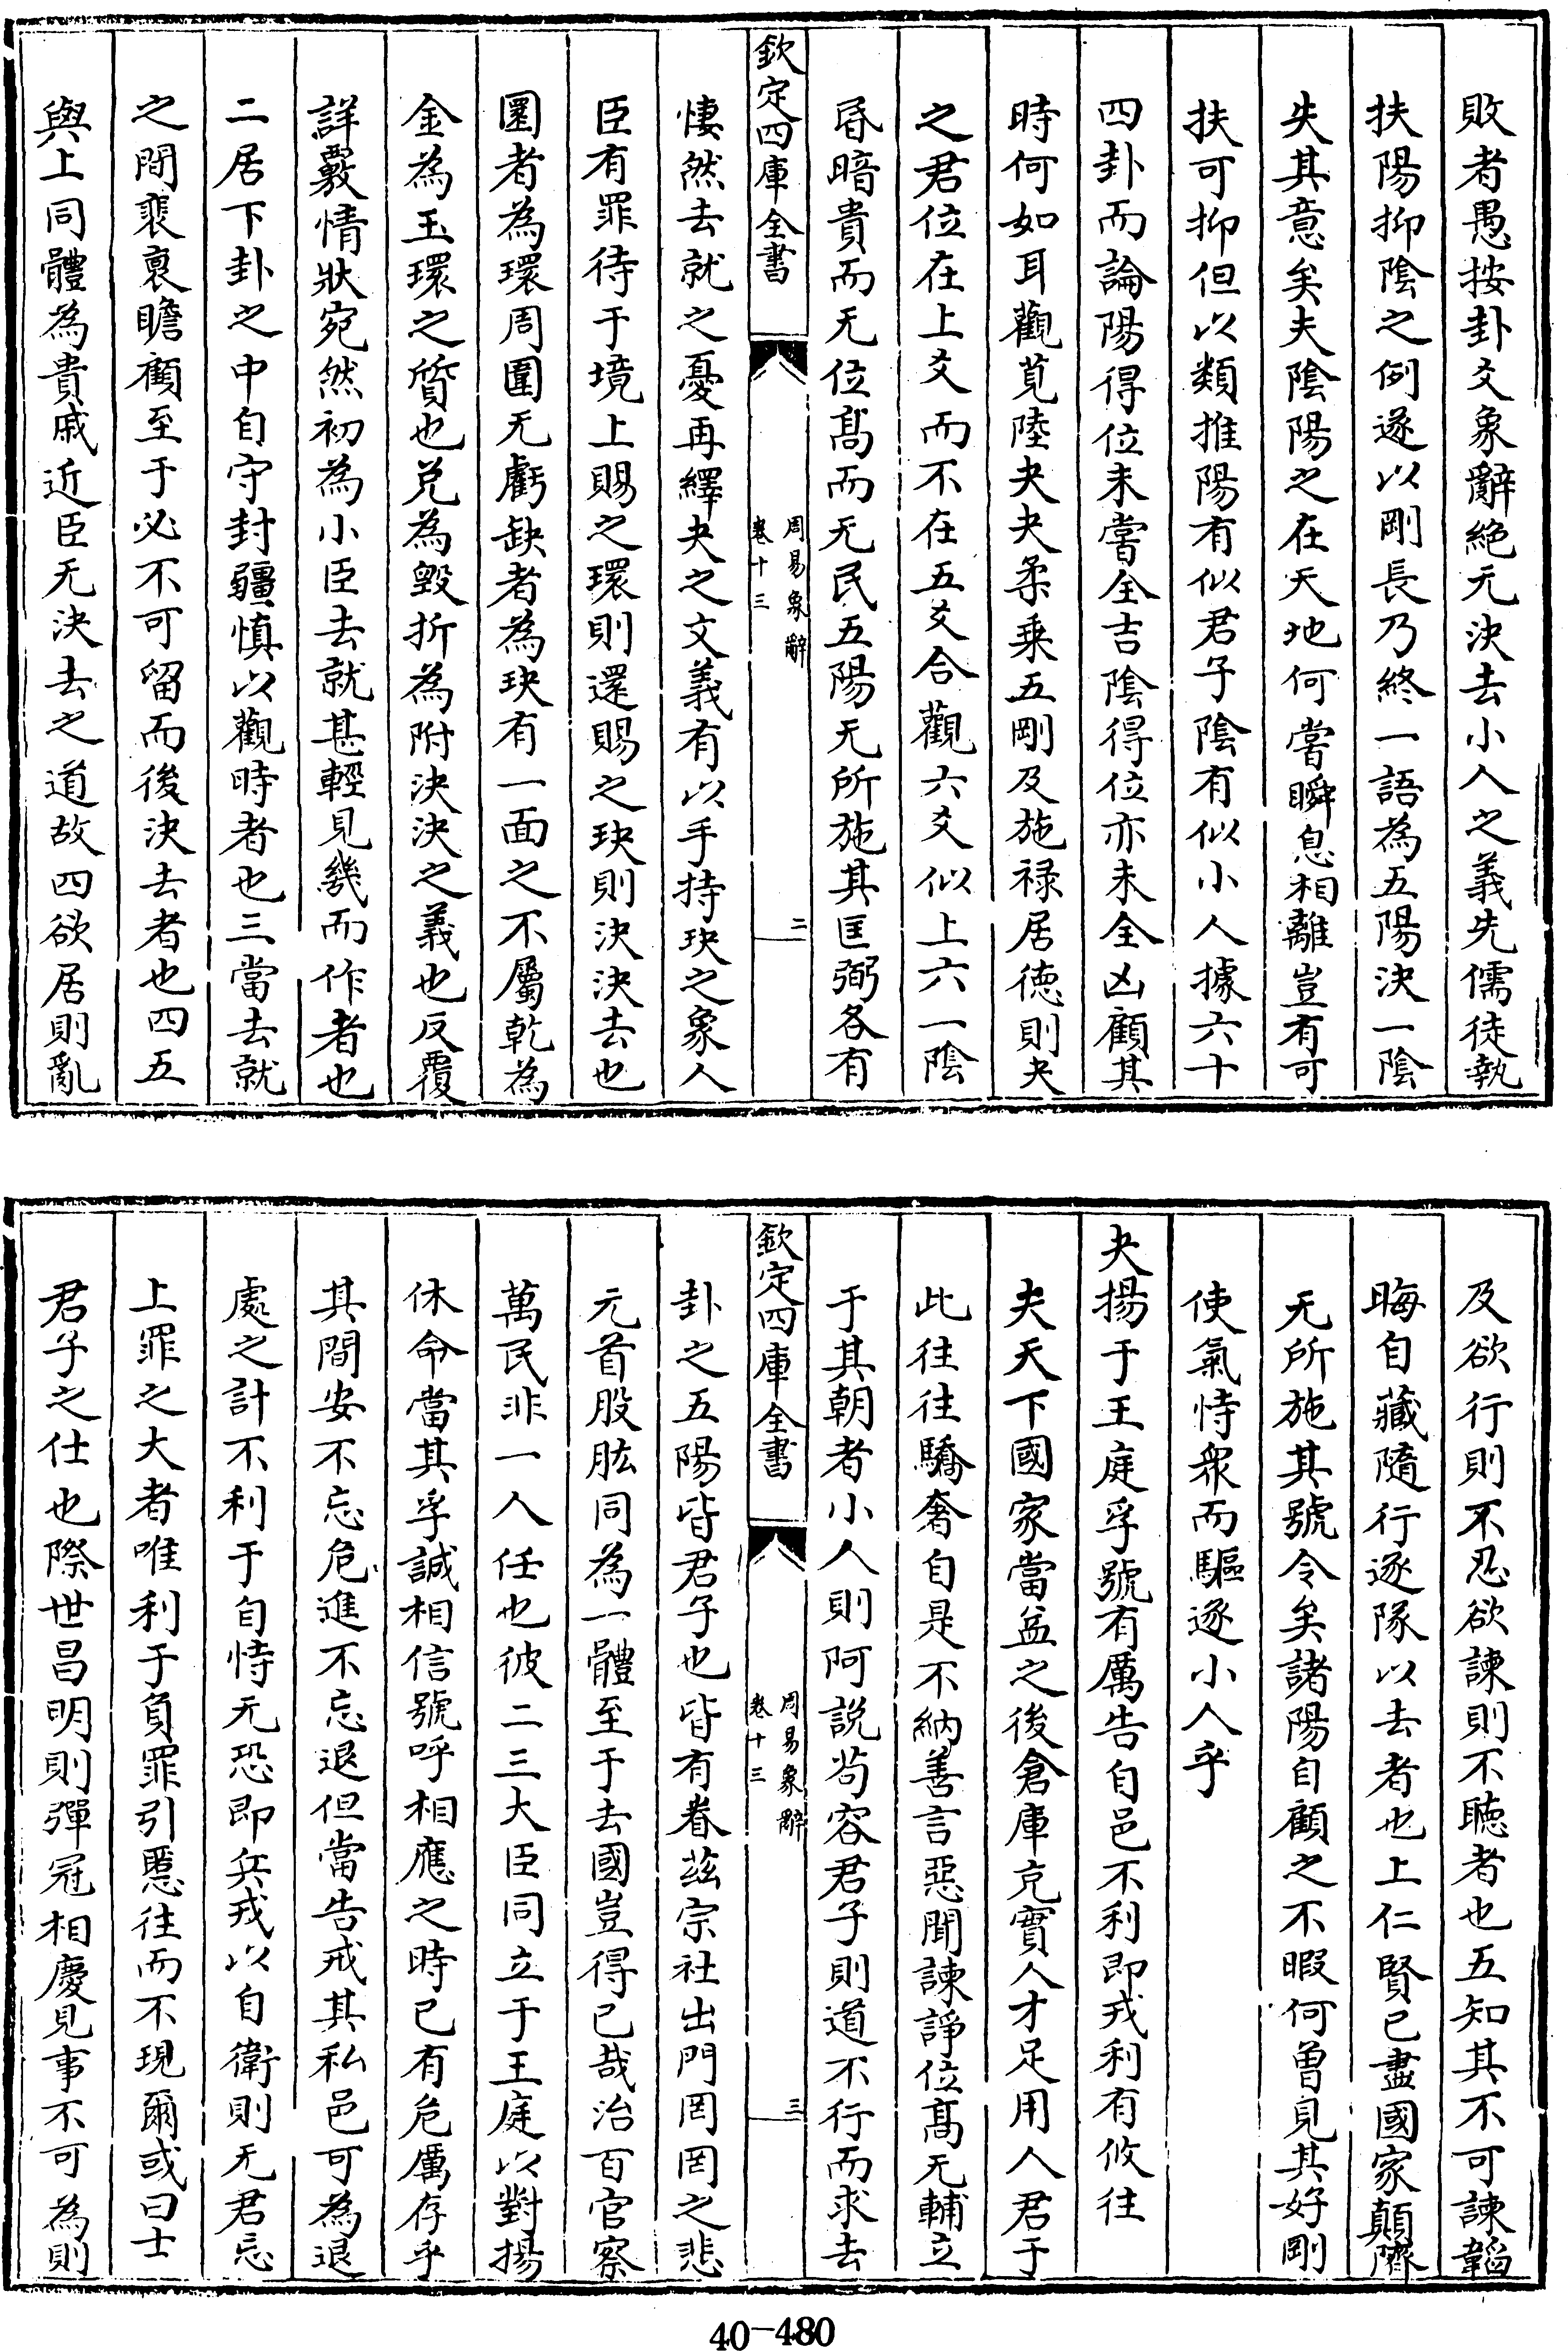 敗者愚按卦爻象辭絶无決去小人之義先儒徒執
扶陽抑陰之例遂以剛長乃終一語為五陽決一陰
失其意矣夫陰陽之在天地何嘗瞬息相離豈有可
扶可抑但以類推陽有似君子陰有似小人據六十
四卦而論陽得位未嘗全吉陰得位亦未全凶顧其
時何如耳觀莧陸夬夬柔乗五剛及施禄居徳則夬
之君位在上爻而不在五爻合觀六爻似上六一陰
昏暗貴而无位髙而无民五陽无所施其匡弼各有
欽定四庫全書
周易象辭
卷十三
二
悽然去就之憂再繹夬之文義有以手持玦之象人
臣有罪待于境上賜之環則還賜之玦則決決去也
圜者為環周圍无虧缺者為玦有一面之不屬乾為
金為玉環之質也兑為毀折為附決決之義也反覆
詳覈情狀宛然初為小臣去就甚輕見幾而作者也
二居下卦之中自守封疆慎以觀時者也三當去就
之間裴裒瞻顧至于必不可留而後決去者也四五
與上同體為貴戚近臣无決去之道故四欲居則亂
及欲行則不忍欲諫則不聴者也五知其不可諫韜
晦自藏隨行逐隊以去者也上仁賢已盡國家顛隮
无所施其號令矣諸陽自顧之不暇何曽見其好剛
使氣恃衆而驅逐小人乎
夬揚于王庭孚號有厲告自邑不利即戎利有攸往
夫天下國家當益之後倉庫充實人才足用人君于
此往往驕奢自是不納善言惡聞諫諍位髙无輔立
于其朝者小人則阿説茍容君子則道不行而求去
欽定四庫全書
周易象辭
卷十三
三
卦之五陽皆君子也皆有眷兹宗社出門罔罔之悲
元首股肱同為一體至于去國豈得已哉治百官察
萬民非一人任也彼二三大臣同立于王庭以對揚
休命當其孚誠相信號呼相應之時已有危厲存乎
其間安不忘危進不忘退但當告戒其私邑可為退
處之計不利于自恃无恐即兵戎以自衛則无君忘
上罪之大者唯利于負罪引慝往而不現爾或曰士
君子之仕也際世昌明則彈冠相慶見事不可為則
40-480